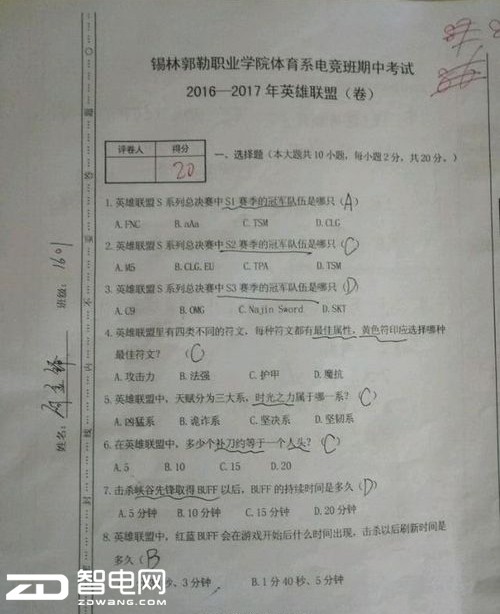 锡林郭勒职业学院体育系电竞班期中考试
2016—2017 年英雄联盟（卷）
评卷人 得分
20
一、选择题（本大题共 10 小题，每小题 2 分，共 20 分。）
1. 英雄联盟 S 系列总决赛中 S1 赛季的冠军队伍是哪只（A）
A. FNC B. aAa C. TSM D. CLG
2. 英雄联盟 S 系列总决赛中 S2 赛季的冠军队伍是哪只（C）
A. M5 B. CLG. EU C. TPA D. TSM
3. 英雄联盟 S 系列总决赛中 S3 赛季的冠军队伍是哪只（D）
A. C9 B. OMG C. Najin Sword D. SKT
4. 英雄联盟里有四类不同的符文，每种符文都有最佳属性，黄色符印应选择哪种
最佳符文？ （C）
A. 攻击力 B. 法强 C. 护甲 D. 魔抗
5. 英雄联盟中，天赋分为三大系，时光之力属于哪一系？（C）
A. 凶猛系 B. 诡诈系 C. 坚决系 D. 坚韧系
6. 在英雄联盟中，多少个补刀约等于一个人头？（C）
A. 5 B. 10 C. 15 D. 20
7. 击杀峡谷先锋取得 BUFF 以后，BUFF 的持续时间是多久（D）
A. 5 分钟 B. 10 分钟 C. 15 分钟 D. 20 分钟
8. 英雄联盟中，红蓝 BUFF 会在游戏开始后什么时间出现，击杀以后刷新时间是
多久（B
秒、3 分钟 B. 1 分 40 秒、5 分钟
班级：1601
姓名：
题 答 要 不 内 线 封
ZD 智电网
ZDWANG.COM